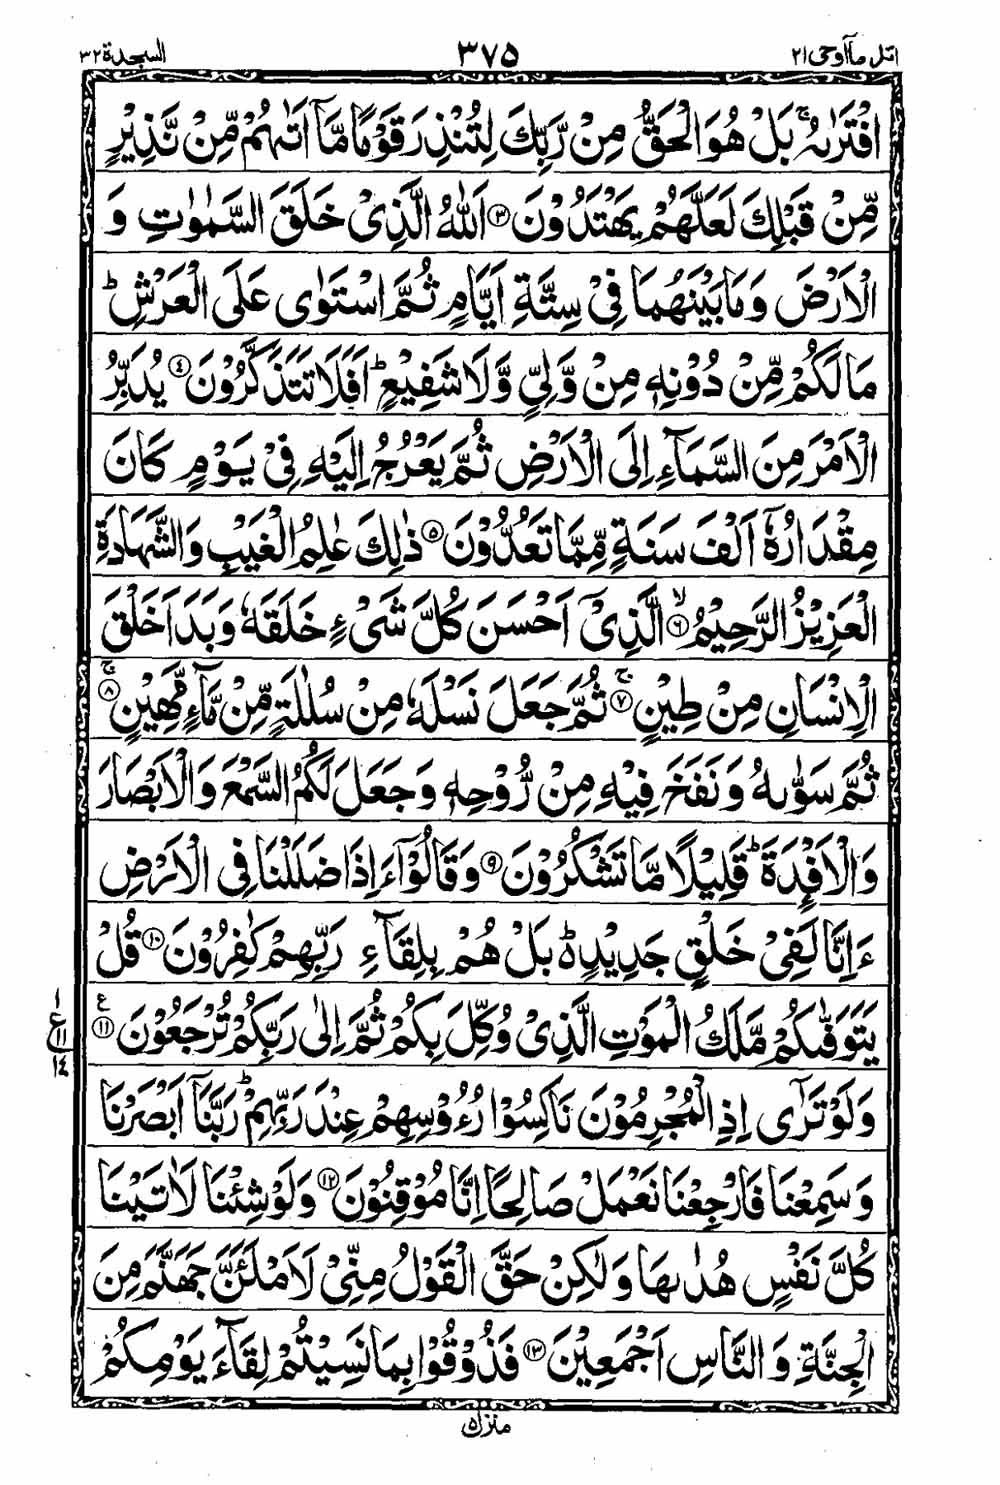 اتل مآ اوحی ٢١
٣٧۵
السجدة ٣٢
افْتَرٰىهُ ۚ بَلْ هُوَ الْحَقُّ مِنْ رَّبِّكَ لِتُنْذِرَ قَوْمًا مَّاۤ اَتٰىهُمْ مِّنْ نَّذِيْرٍ
مِّنْ قَبْلِكَ لَعَلَّهُمْ يَهْتَدُوْنَ ﴿٣﴾ اَللّٰهُ الَّذِىْ خَلَقَ السَّمٰوٰتِ وَ
الْاَرْضَ وَمَا بَيْنَهُمَا فِىْ سِتَّةِ اَيَّامٍ ثُمَّ اسْتَوٰى عَلَى الْعَرْشِ ؕ
مَا لَكُمْ مِّنْ دُوْنِهٖ مِنْ وَّلِىٍّ وَّلَا شَفِيْعٍ ؕ اَفَلَا تَتَذَكَّرُوْنَ ﴿۴﴾ يُدَبِّرُ
الْاَمْرَ مِنَ السَّمَآءِ اِلَى الْاَرْضِ ثُمَّ يَعْرُجُ اِلَيْهِ فِىْ يَوْمٍ كَانَ
مِقْدَارُهٗۤ اَلْفَ سَنَةٍ مِّمَّا تَعُدُّوْنَ ﴿۵﴾ ذٰلِكَ عٰلِمُ الْغَيْبِ وَالشَّهَادَةِ
الْعَزِيْزُ الرَّحِيْمُ ۙ﴿۶﴾ الَّذِىْۤ اَحْسَنَ كُلَّ شَىْءٍ خَلَقَهٗ وَبَدَاَ خَلْقَ
الْاِنْسَانِ مِنْ طِيْنٍ ۚ﴿٧﴾ ثُمَّ جَعَلَ نَسْلَهٗ مِنْ سُلٰلَةٍ مِّنْ مَّآءٍ مَّهِيْنٍ ۚ﴿٨﴾
ثُمَّ سَوّٰىهُ وَنَفَخَ فِيْهِ مِنْ رُّوْحِهٖ وَجَعَلَ لَكُمُ السَّمْعَ وَالْاَبْصَارَ
وَالْاَفْـِٕدَةَ ؕ قَلِيْلًا مَّا تَشْكُرُوْنَ ﴿٩﴾ وَقَالُوْۤا ءَاِذَا ضَلَلْنَا فِى الْاَرْضِ
ءَاِنَّا لَفِىْ خَلْقٍ جَدِيْدٍ ؕ۬ بَلْ هُمْ بِلِقَآءِ رَبِّهِمْ كٰفِرُوْنَ ﴿١٠﴾ قُلْ
يَتَوَفّٰىكُمْ مَّلَكُ الْمَوْتِ الَّذِىْ وُكِّلَ بِكُمْ ثُمَّ اِلٰى رَبِّكُمْ تُرْجَعُوْنَ ﴿١١﴾ ع
١ ع ١١ ١۴
وَلَوْ تَرٰٓى اِذِ الْمُجْرِمُوْنَ نَاكِسُوْا رُءُوْسِهِمْ عِنْدَ رَبِّهِمْ ؕ رَبَّنَاۤ اَبْصَرْنَا
وَسَمِعْنَا فَارْجِعْنَا نَعْمَلْ صَالِحًا اِنَّا مُوْقِنُوْنَ ﴿١٢﴾ وَلَوْ شِئْنَا لَاٰتَيْنَا
كُلَّ نَفْسٍ هُدٰىهَا وَلٰكِنْ حَقَّ الْقَوْلُ مِنِّىْ لَاَمْلَئَنَّ جَهَنَّمَ مِنَ
الْجِنَّةِ وَالنَّاسِ اَجْمَعِيْنَ ﴿١٣﴾ فَذُوْقُوْا بِمَا نَسِيْتُمْ لِقَآءَ يَوْمِكُمْ
منزل ۵